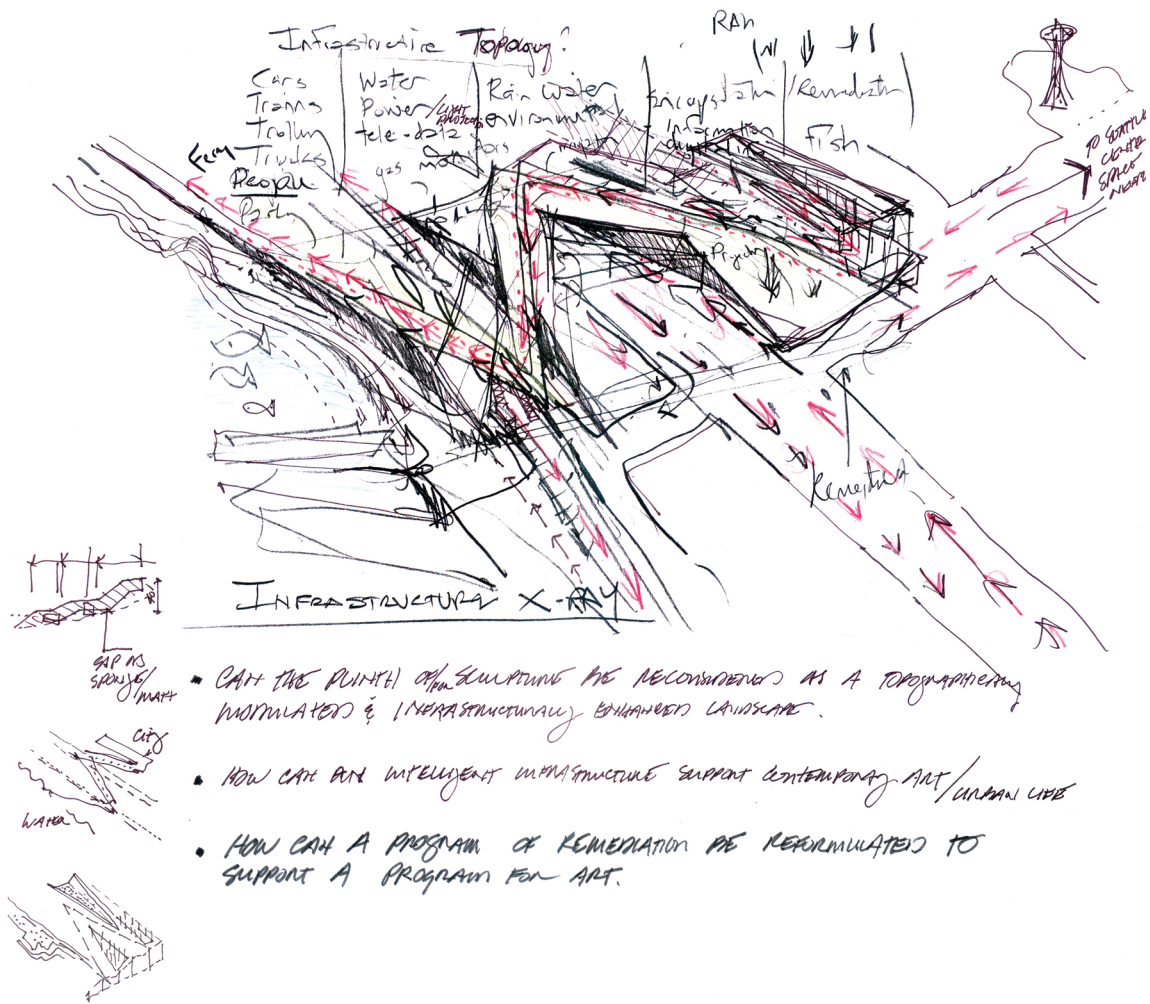 Infrastructure Topology?
RAIN
Cars
Trains
Trolley
Trucks
People
Path
Ferry
Water
Power/LIGHT
tele-data
gas
Rain water
environmental
Encapsulation
Information
digital
/Remediation
fish
TO SEATTLE
CENTER
SPACE
NEEDLE
Projection
INFRASTRUCTURE X-RAY
GAP AS
SPONGE/
MATT
CITY
WATER
• CAN THE PLINTH OF/FOR SCULPTURE BE RECONSIDERED AS A TOPOGRAPHICALLY
MODULATED & INFRASTRUCTURALLY ENHANCED LANDSCAPE.
• HOW CAN AN INTELLIGENT INFRASTRUCTURE SUPPORT CONTEMPORARY ART/URBAN LIFE
• HOW CAN A PROGRAM OF REMEDIATION BE REFORMULATED TO
SUPPORT A PROGRAM FOR ART.